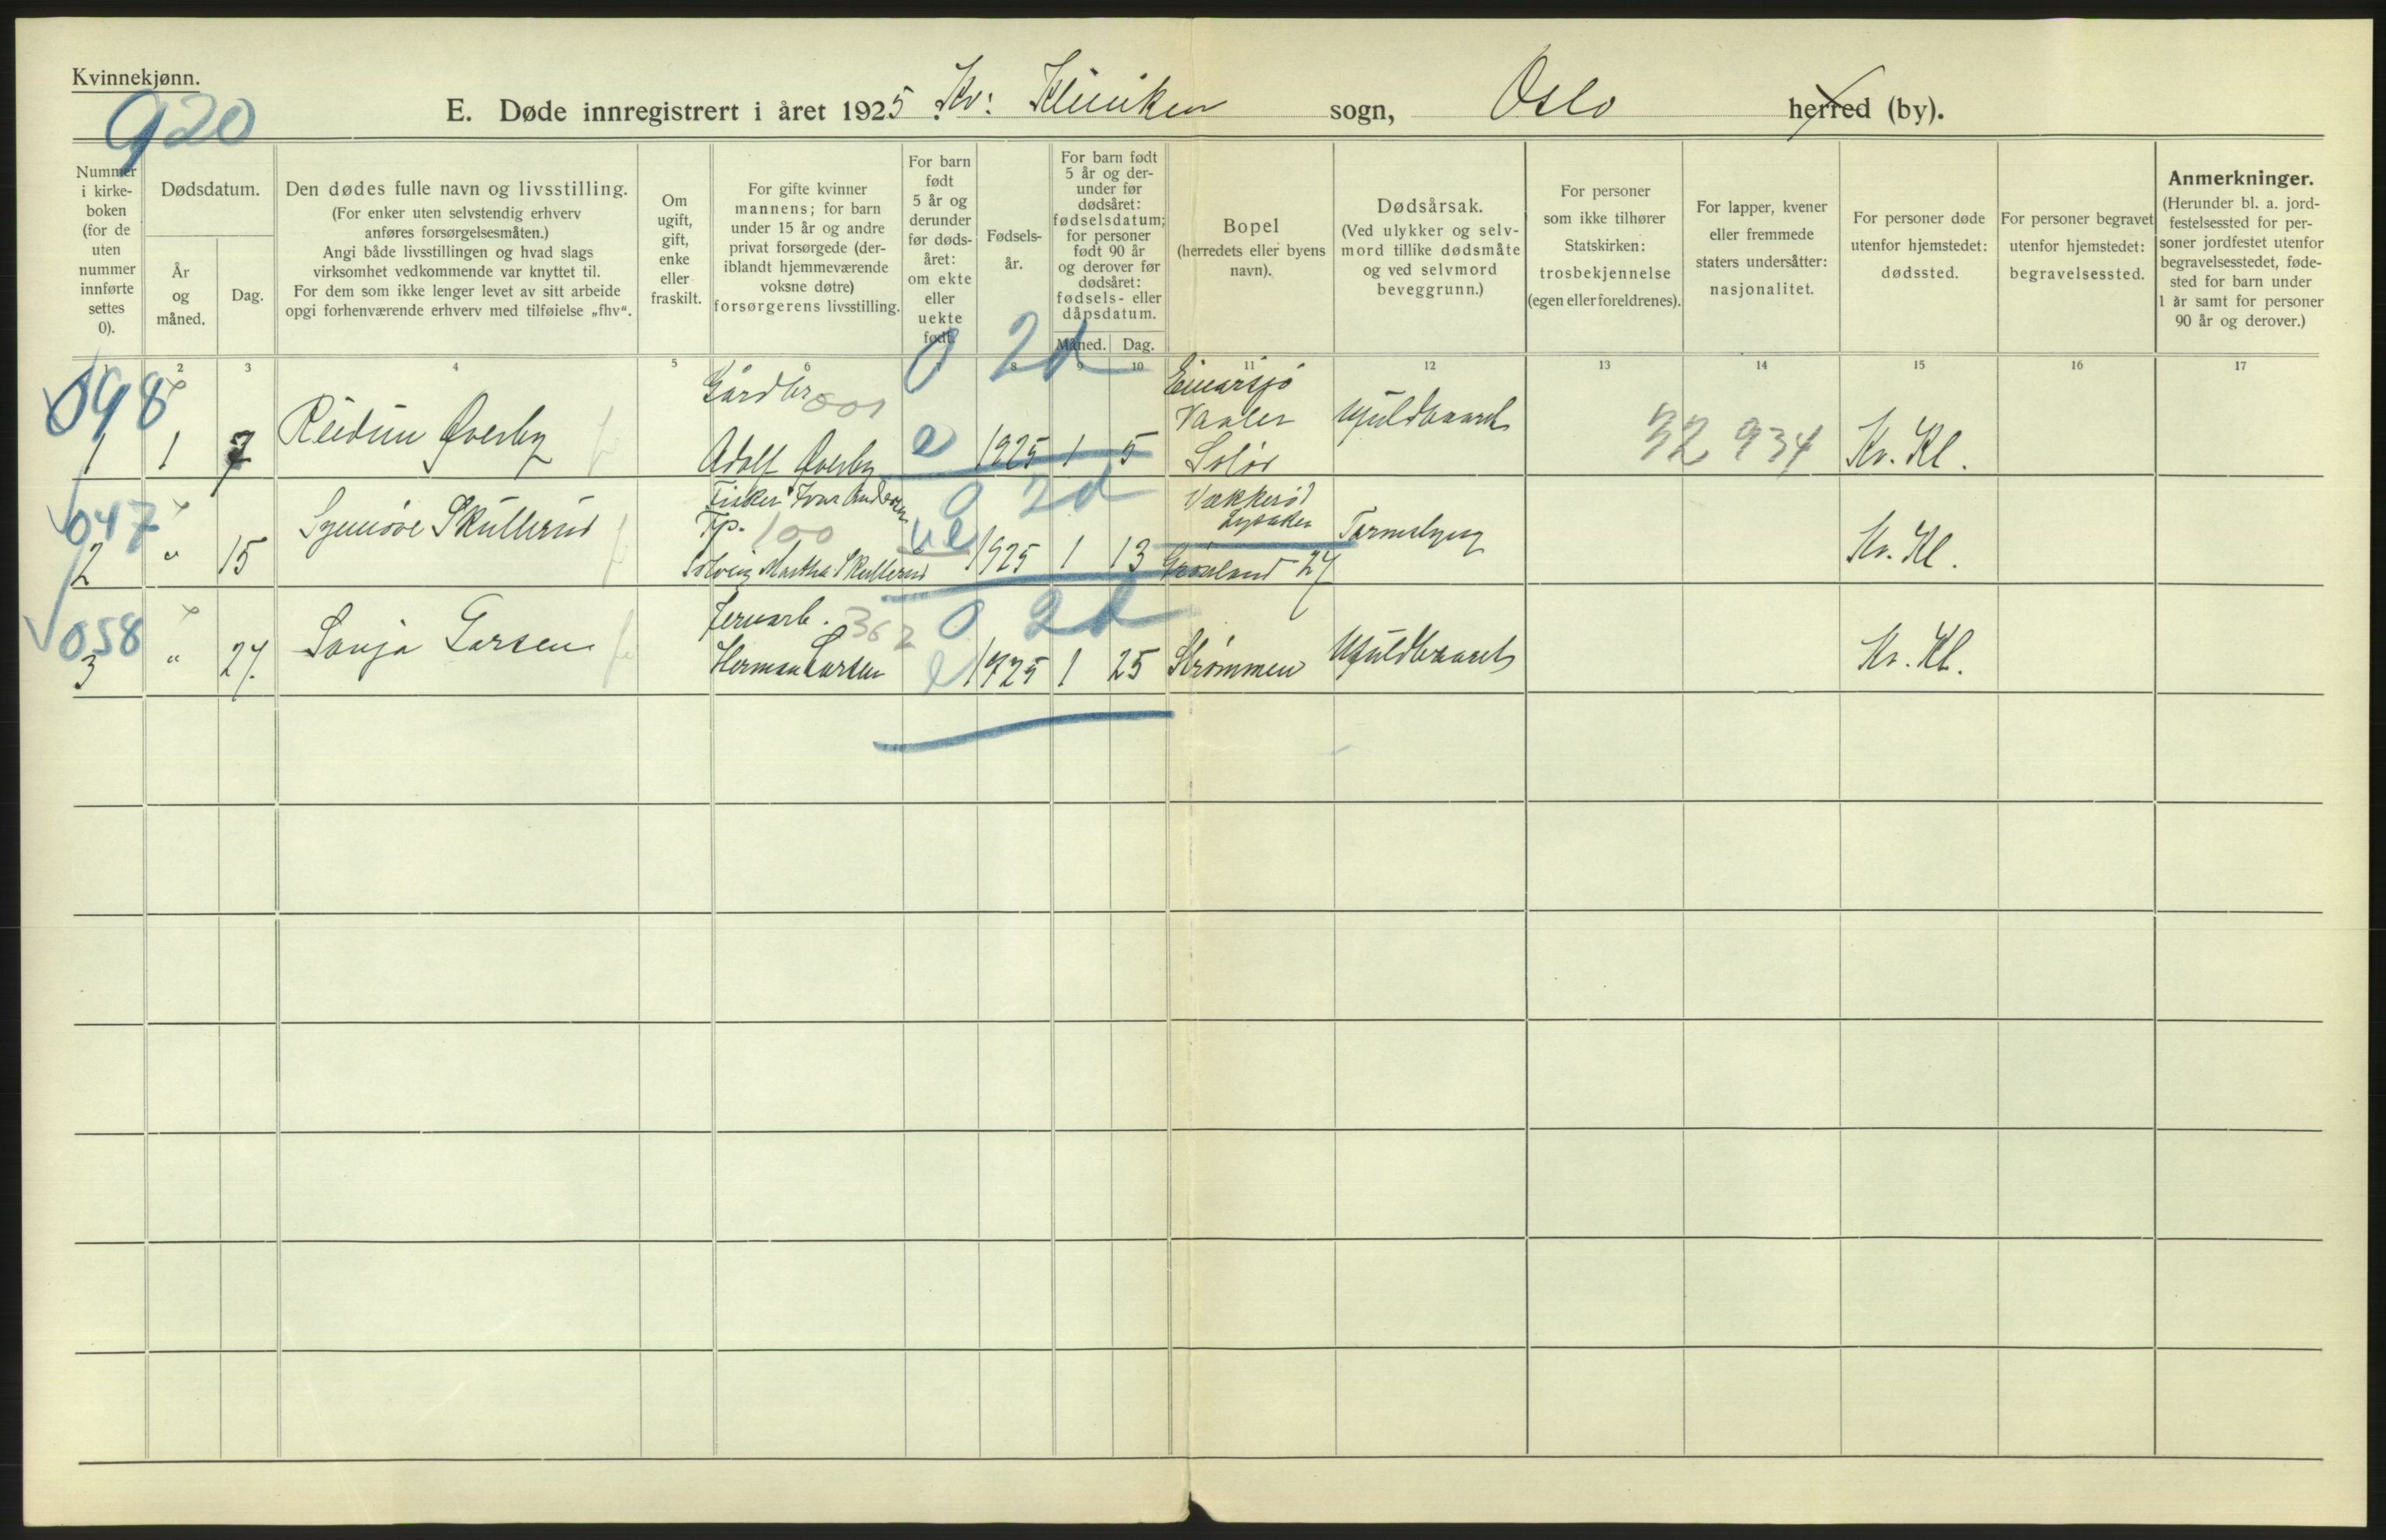 Kvinnekjønn.
920
E. Døde innregistrert i året 1925. Kv: Kliniken sogn, Oslo herred (by).
Nummer i kirke- boken (for de uten nummer innførte settes 0).
Dødsdatum.
År og måned.
Dag.
Den dødes fulle navn og livsstilling.
(For enker uten selvstendig erhverv
anføres forsørgelsesmåten.)
Angi både livsstillingen og hvad slags
virksomhet vedkommende var knyttet til.
For dem som ikke lenger levet av sitt arbeide
opgi forhenværende erhverv med tilføielse „fhv“.
Om
ugift,
gift,
enke
eller
fraskilt.
For gifte kvinner
mannens; for barn
under 15 år og andre
privat forsørgede (der-
iblandt hjemmeværende
voksne døtre)
forsørgerens livsstilling.
For barn
født
5 år og
derunder
før døds-
året:
om ekte
eller
uekte
født.
Fødsels-
år.
For barn født
5 år og der-
under før
dødsåret:
fødselsdatum;
for personer
født 90 år
og derover før
dødsåret:
fødsels- eller
dåpsdatum.
Måned.
Dag.
Bopel
(herredets eller byens
navn).
Dødsårsak.
(Ved ulykker og selv-
mord tillike dødsmåte
og ved selvmord
beveggrunn.)
For personer
som ikke tilhører
Statskirken:
trosbekjennelse
(egen eller foreldrenes).
For lapper, kvener
eller fremmede
staters undersåtter:
nasjonalitet.
For personer døde
utenfor hjemstedet:
dødssted.
For personer begravet
utenfor hjemstedet:
begravelsessted.
Anmerkninger.
(Herunder bl. a. jord-
festelsessted for per-
soner jordfestet utenfor
begravelsesstedet, føde-
sted for barn under
1 år samt for personer
90 år og derover.)
1 2 3 4 5 6 7 8 9 10 11 12 13 14 15 16 17
098 Gårdbr. 001 0 2d Einarsjø
Vaaler
1 1 7 Reidun Øverby Adolf Øverby e 1925 1 5 Solør Ufuldbaaret 32 934 Kv. Kl.
047 Fisker Ivar Andersen 0 2d Vækkerød
Synnøve Skullerud Tjp. 100 ue Lysaker Tarmslyng
2 " 15 Solveig Martha Skullerud 1925 1 13 Grønland 27 Kv. Kl.
058 Jernarb. 362 0 2d
3 " 27. Sonja Larsen Herman Larsen e 1925 1 25 Strømmen Ufuldbaaret Kv. Kl.